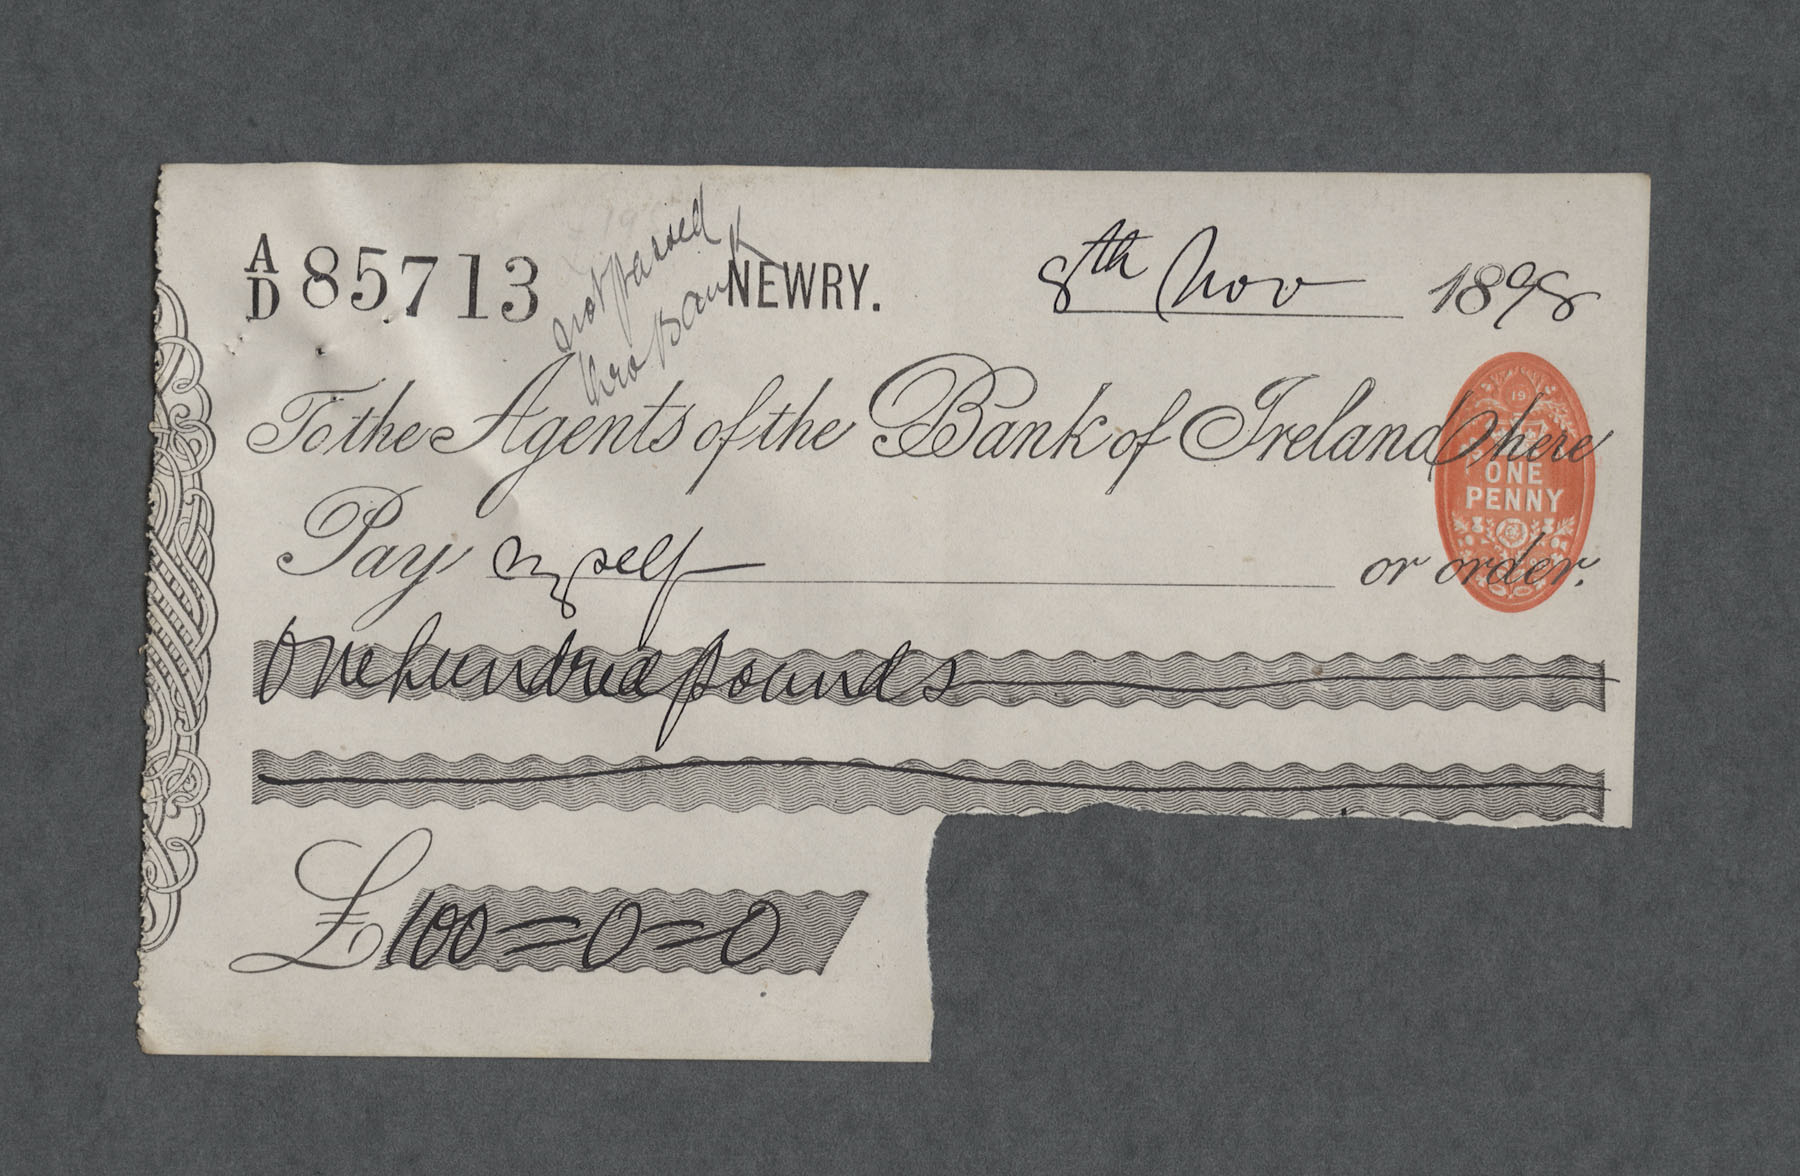 A/D 85713 NEWRY. 8th Nov 1898
not passed
thro Bank
To the Agents of the Bank of Ireland, here
19
ONE
PENNY
Pay myself or order.
One hundred pounds
£100=0=0